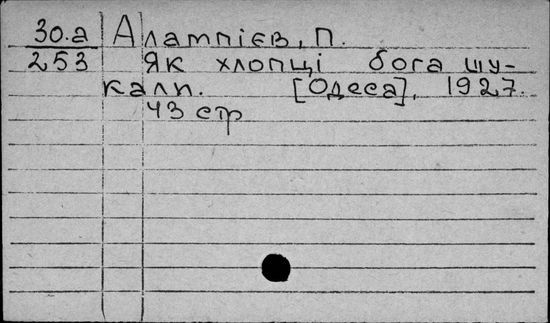 30.а Алампієв, П.
253 Як хлопці бога шу-
кали. [Одеса], 1927.
43 стр